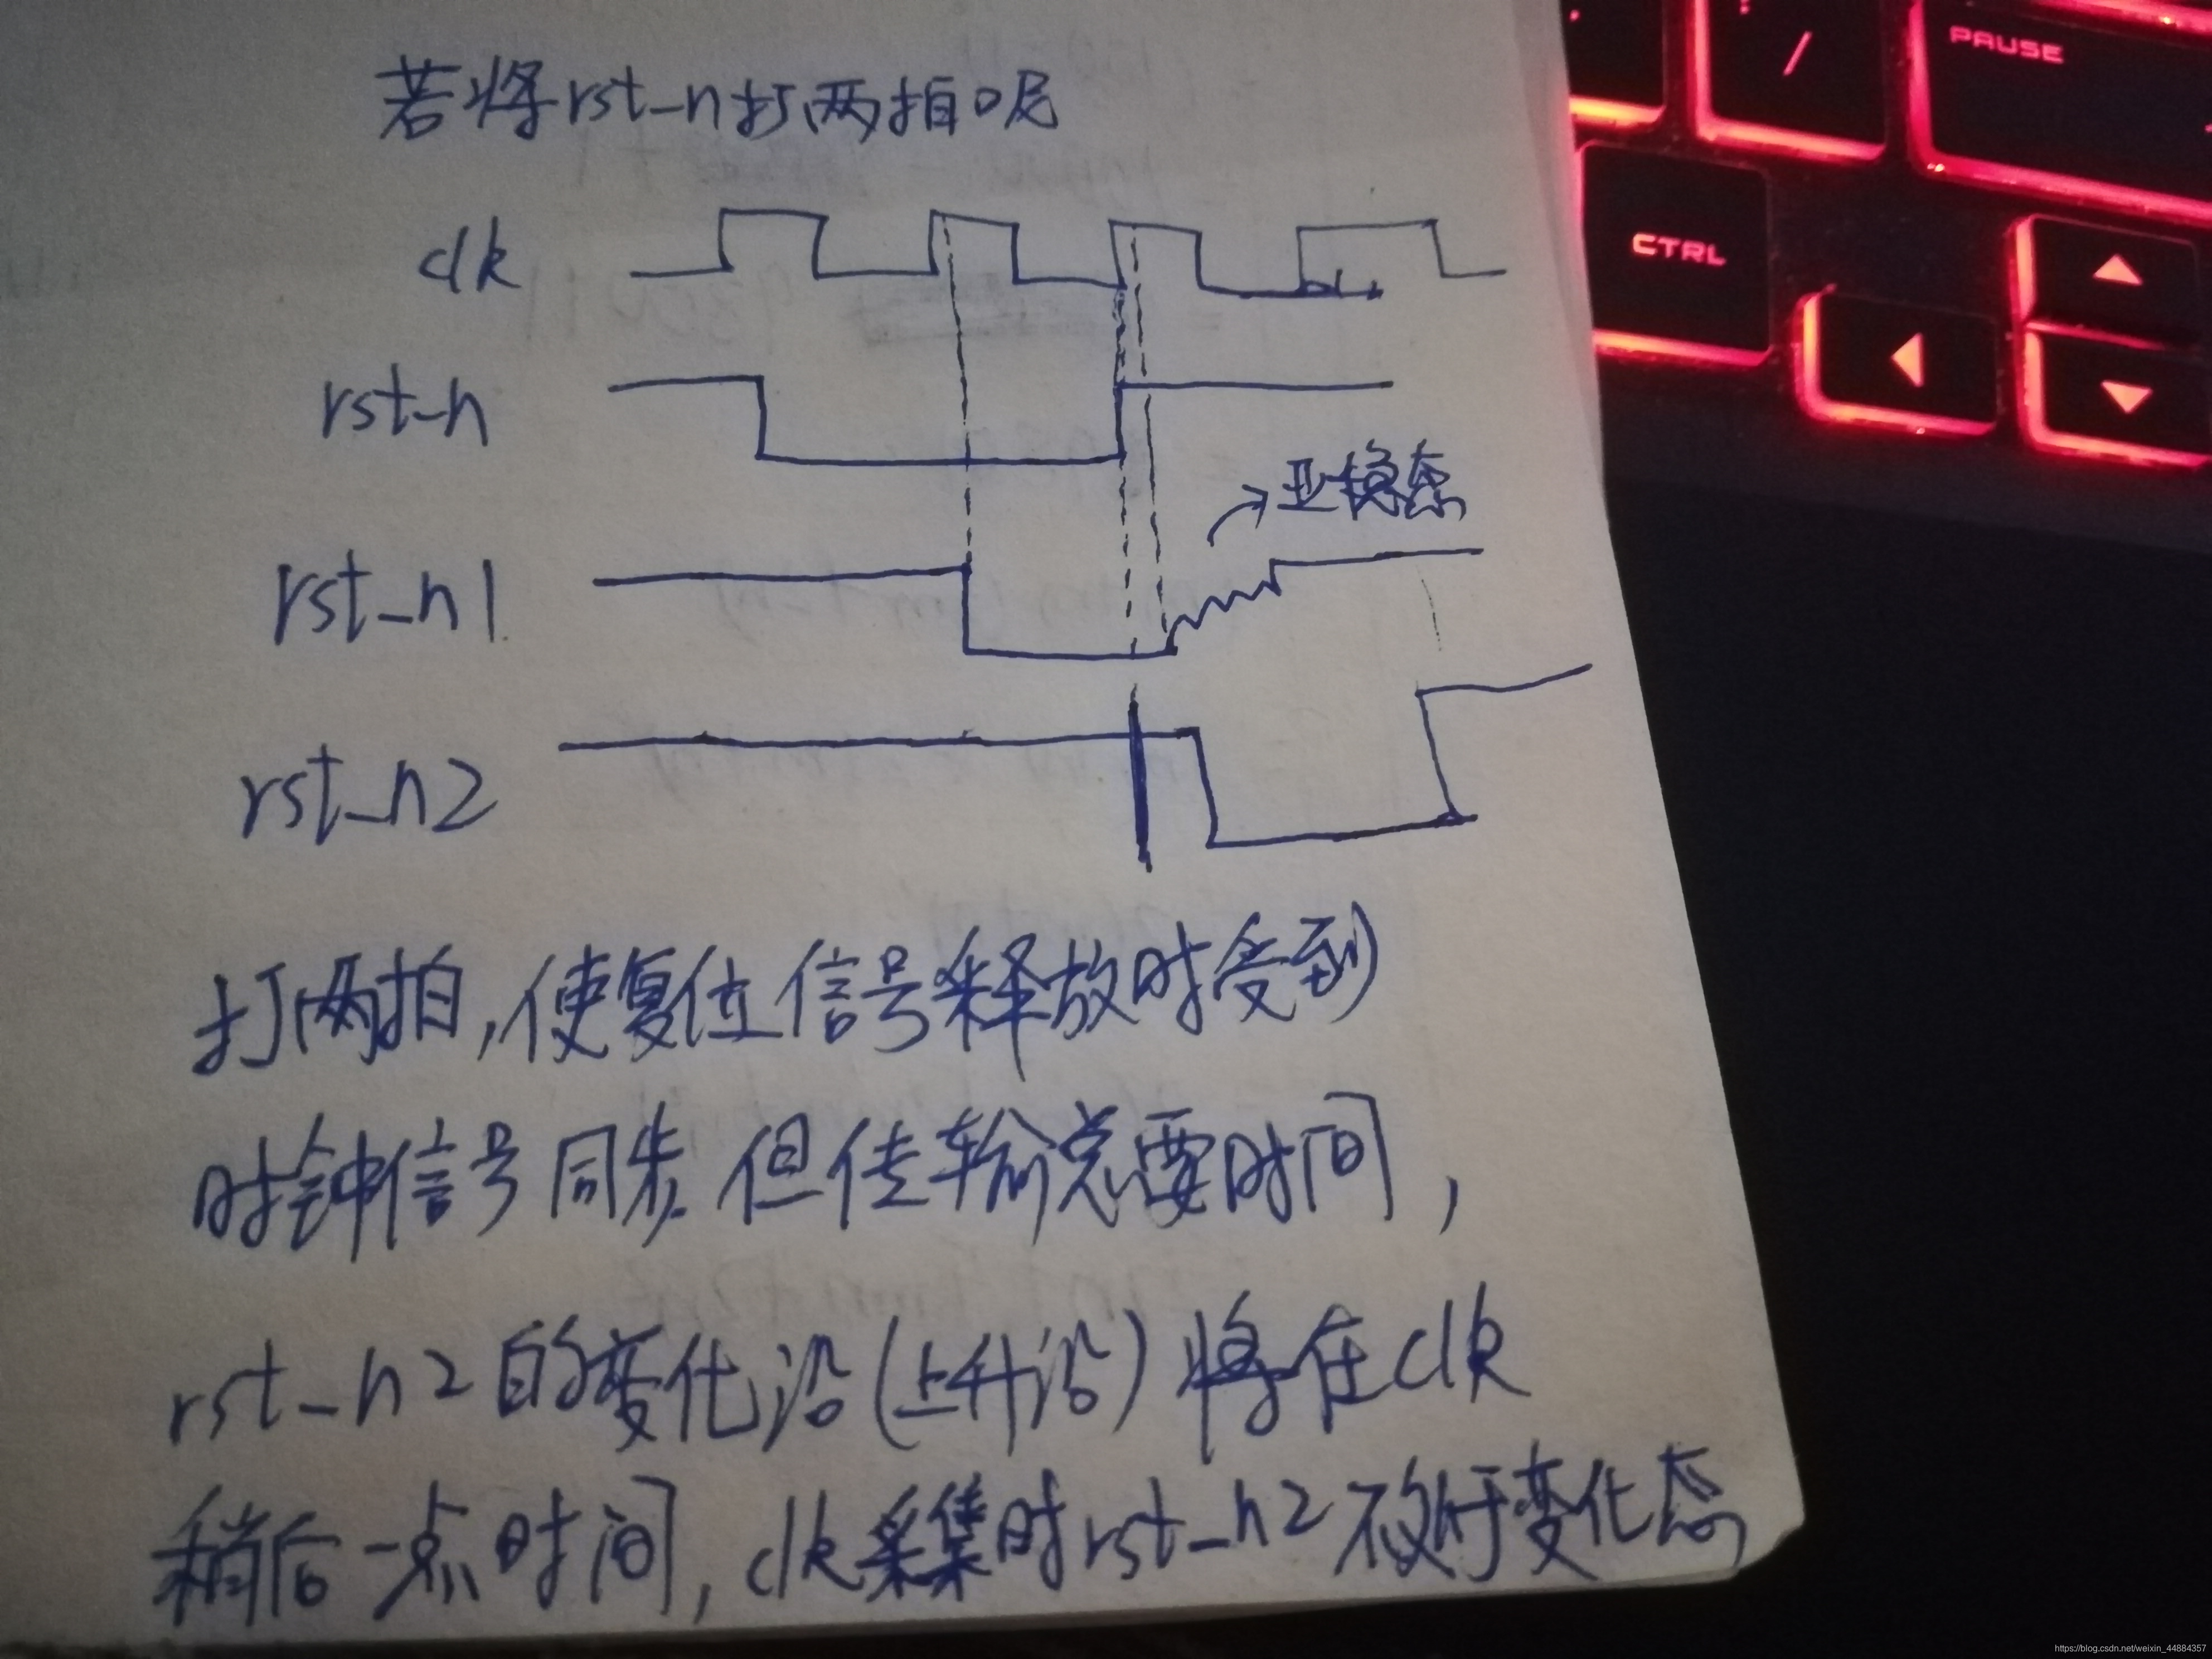 若将rst_n打两拍呢
clk
rst_n
亚稳态
rst_n1
rst_n2
打两拍,使复位信号释放时受到
时钟信号同步.但传输总要时间,
rst_n2的变化沿(上升沿)将在clk
稍后一点时间,clk采集时rst_n2不处于变化态
PAUSE
/
CTRL
https://blog.csdn.net/weixin_44884357